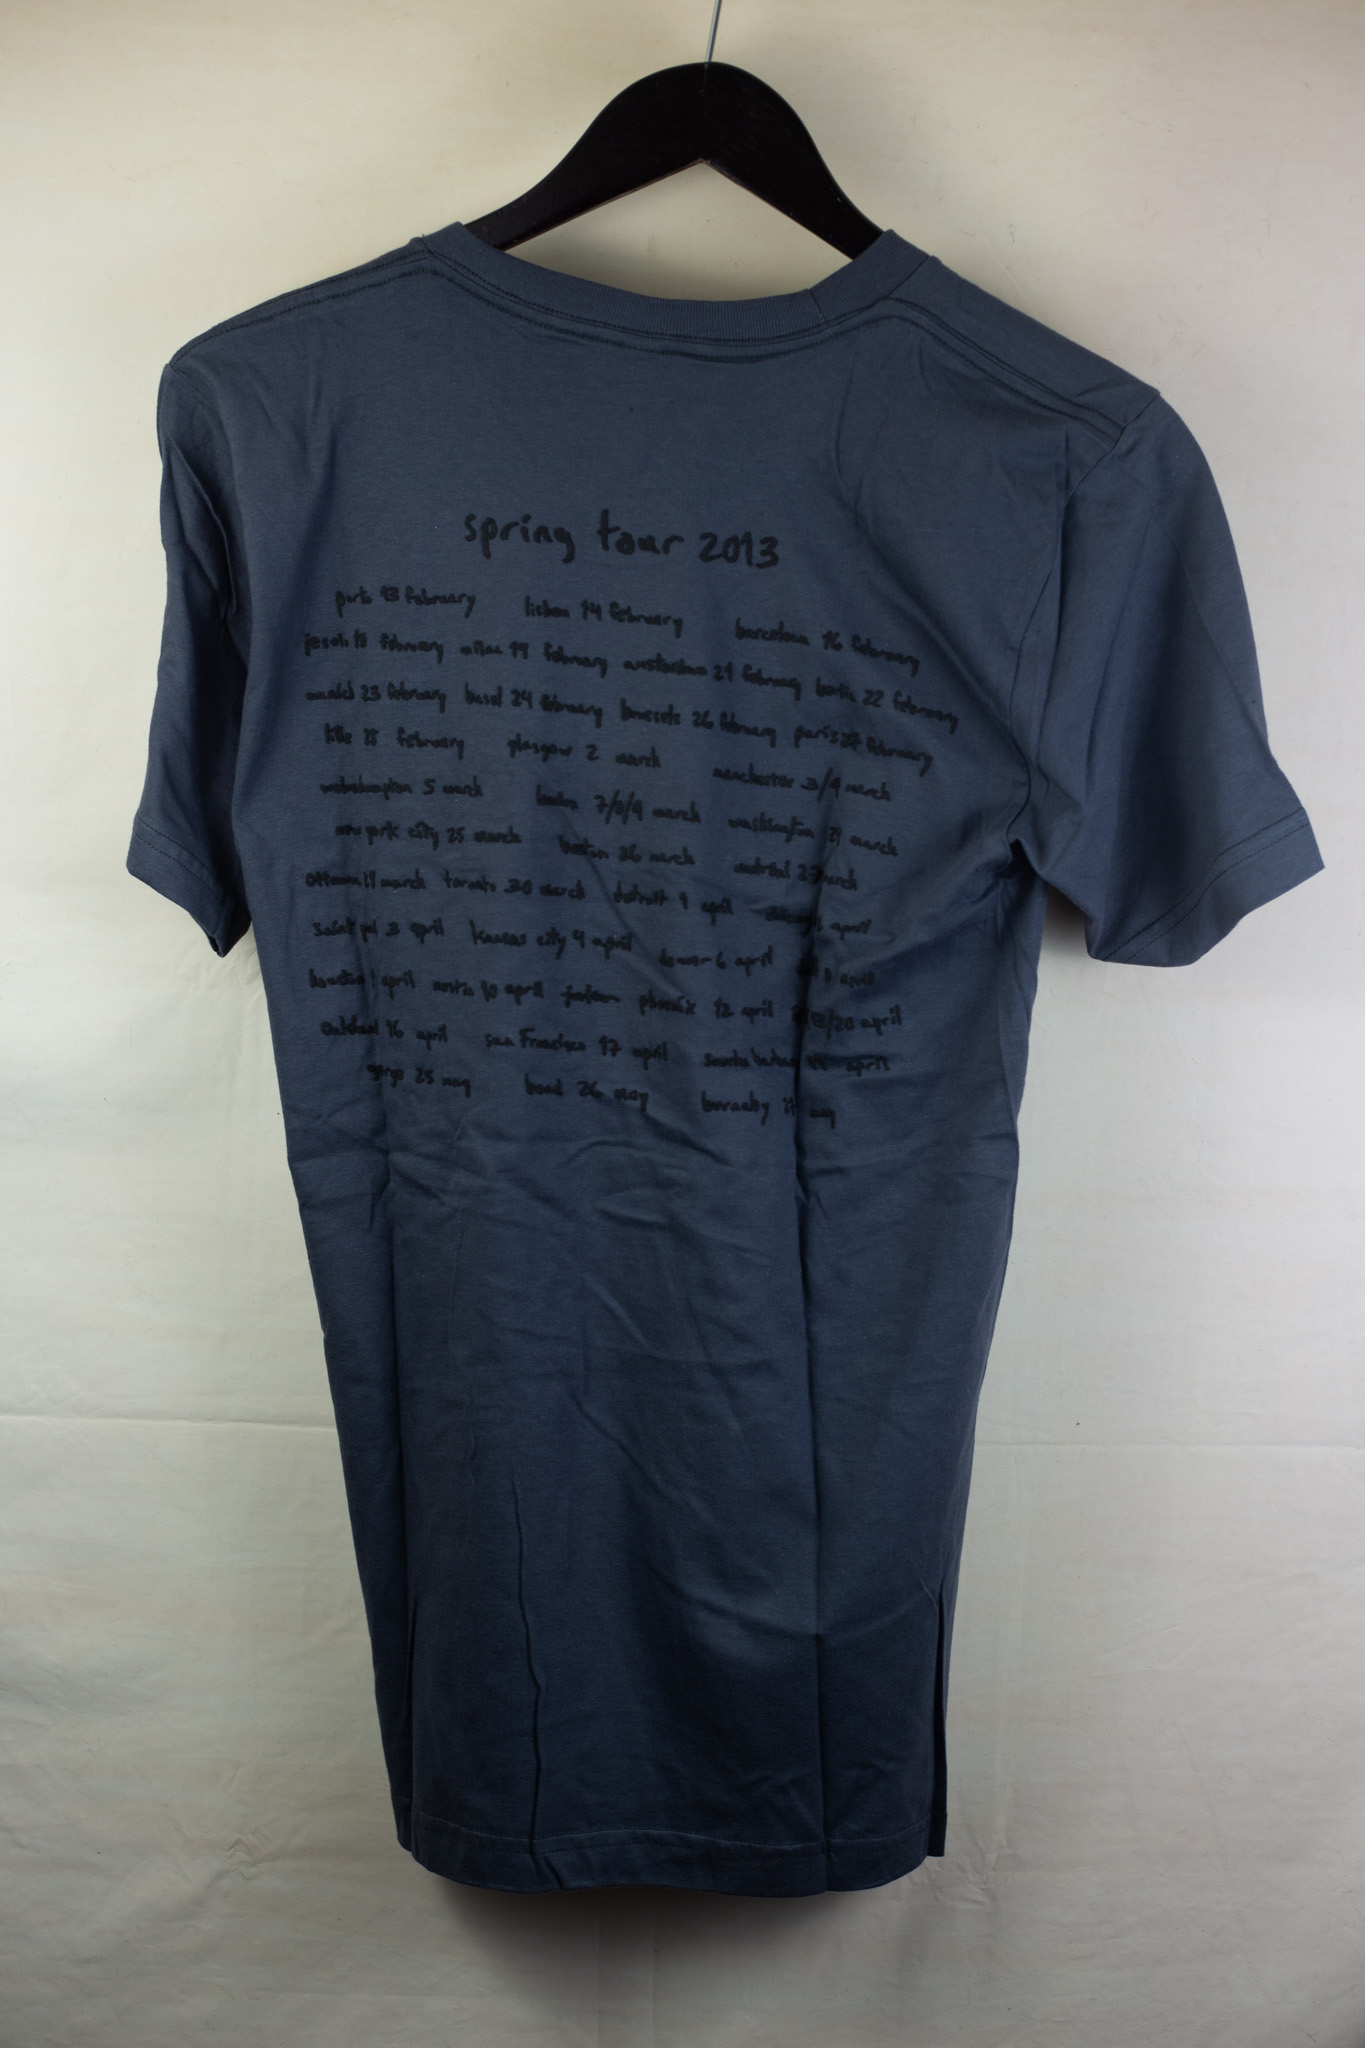 spring tour 2013
porto 13 february lisbon 14 february barcelona 16 february
jesolo 18 february milan 19 february amsterdam 21 february berlin 22 february
munich 23 february basel 24 february brussels 26 february paris february
lille 28 february glasgow 2 march manchester 3/4 march
wolverhampton 5 march london 7/8/9 march washington march
new york city 25 march boston 26 march montréal 27 march
ottawa march toronto 30 march detroit 1 april april
saint pol 3 april kansas city 4 april denver 6 april april
houston april austin 10 april phoenix 12 april /20 april
oakland 16 april san francisco 17 april santa barbara april
gorge 25 may bend 26 may burnaby may